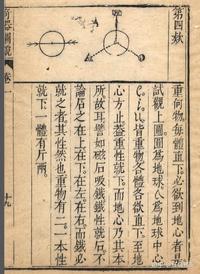 第四款
重何物每體直下必欲到地心者是
試觀上圖圓為地球A為地球中心
皆重物各體各欲直下至地
心方止蓋重性就下而地心乃其本
所故耳譬如磁石吸鐵鐵性就石不
論石之在上在下在左在右而鐵必
就之者其性然也重物有二一本性
就下一體有斤兩
奇器圖說
卷一
十九